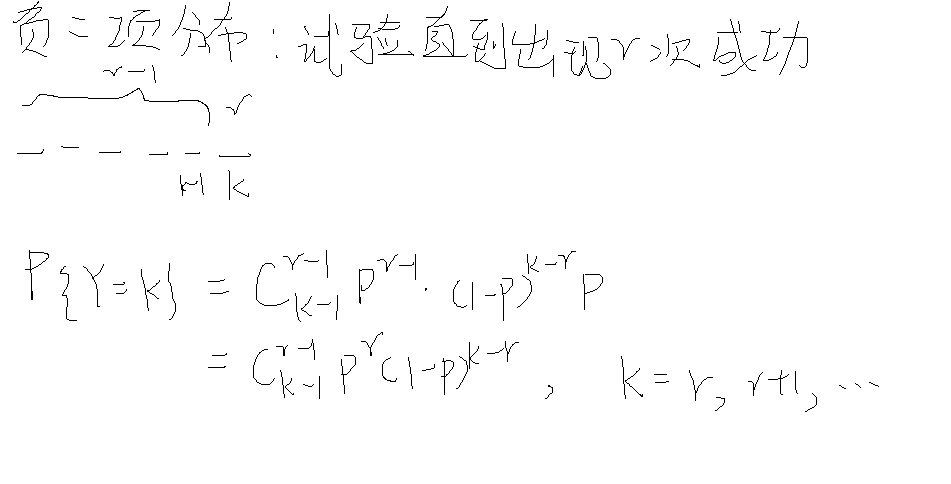 负二项分布：试验直到出现r次成功
r-1 r
k-1 k
P{Y=k} = C_{k-1}^{r-1} p^{r-1} · (1-p)^{k-r} p
= C_{k-1}^{r-1} p^{r} (1-p)^{k-r} , k=r, r+1, …